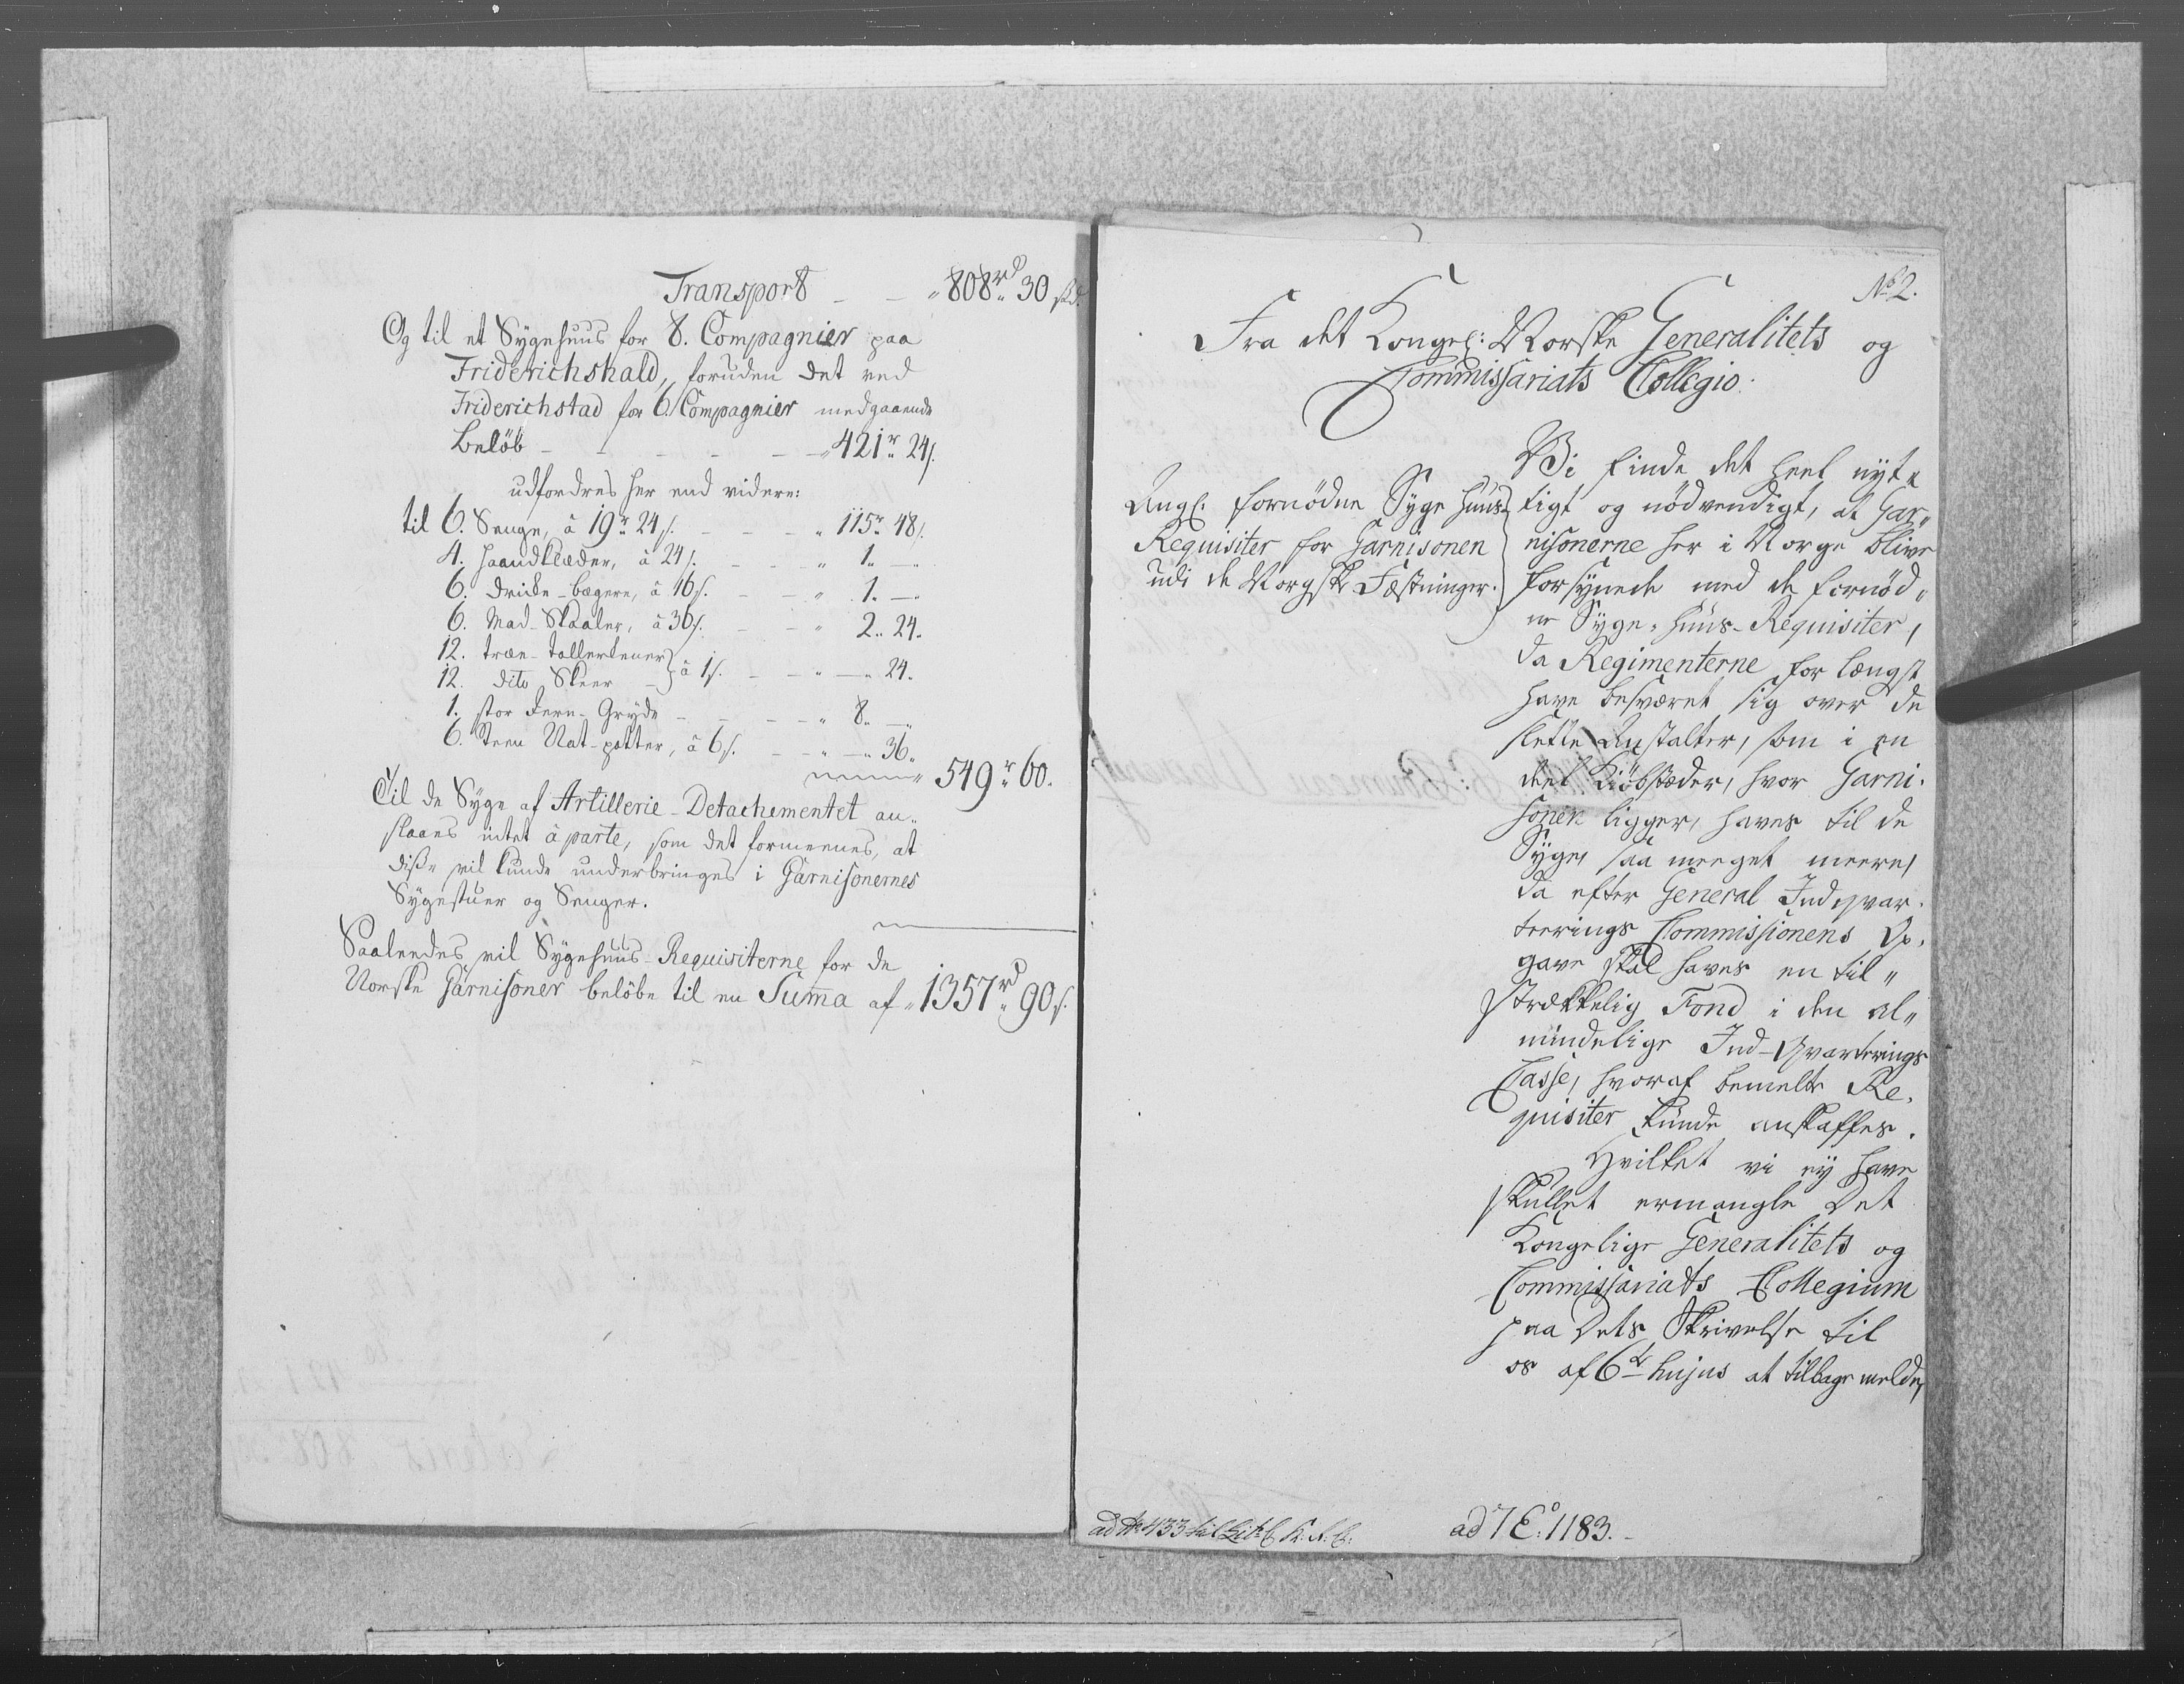 Transport - - „808rd„30 skl.
Og til et Sygehuus for 8. Compagnier paa
Friderichshald, foruden det ved
Friderichstad for 6. Compagnier medgaaende
Beløb - - - - - „421r„24s.
udfordres her end videre:
til 6. Senge, â 19r 24s. - - - „ 115r„48s.
4. Haandklæder, â 24s. - - - „ 1„ —
6. Dricke-bægere, â 16s. - - „ 1„ —
6. Mad-Skaaler, â 36s. - - „ 2„ 24„
12. træe-tallerkener
12. dito Skeer } â 1s. - - „ — „ 24„
1. stor Jern-Gryde - - - - „ 8„ —„
6. Steen Nat-potter, â 6s. - - „ — „ 36„
„ 549r„60.
Til de Syge af Artillerie-Detachementet an„
slaaes intet â parte, som det formeenes, at
disse vil kunde underbringes i Garnisonernes
Sygestuer og Senger.
Saaleedes vil Sygehuus-Requisiterne for de
Norske Garnisoner beløbe til en Suma af „1357rd„90s.
No 2.
Fra det Kongel: Norske Generalitets og
Commissariats Collegio.
Angl. fornødne Syge Huus-
Requisiter for Garnisonen
udi de Norske Fæstninger.
Vi finde det heel nyt„
tigt og nødvendigt, at Gar„
nisonerne her i Norge blive
forsynede med de fornød„
ne Syge-Huus-Requisiter,
da Regimenterne for længst
have besværet sig over de
slette Anstalter, som i en
deel Kiøbstæder, hvor Garni„
sonen ligger, haves til de
Syge, saa meeget meere,
da efter General Indqvar„
teerings Commissionens Op„
gave skal haves en til„
strækkelig Fond i den al„
mindelige Ind-Qvarterings
Casse, hvoraf bemelte Re„
quisiter kunde anskaffes.
Hvilket vi ey have
skullet ermangle Det
Kongelige Generalitets og
Commissariats Collegium
paa Dets Skrivelse til
os af 6te hujus at tilbage melde,
ad No 433 til Lit: C. K. A. C.
ad 7 E: 1183.